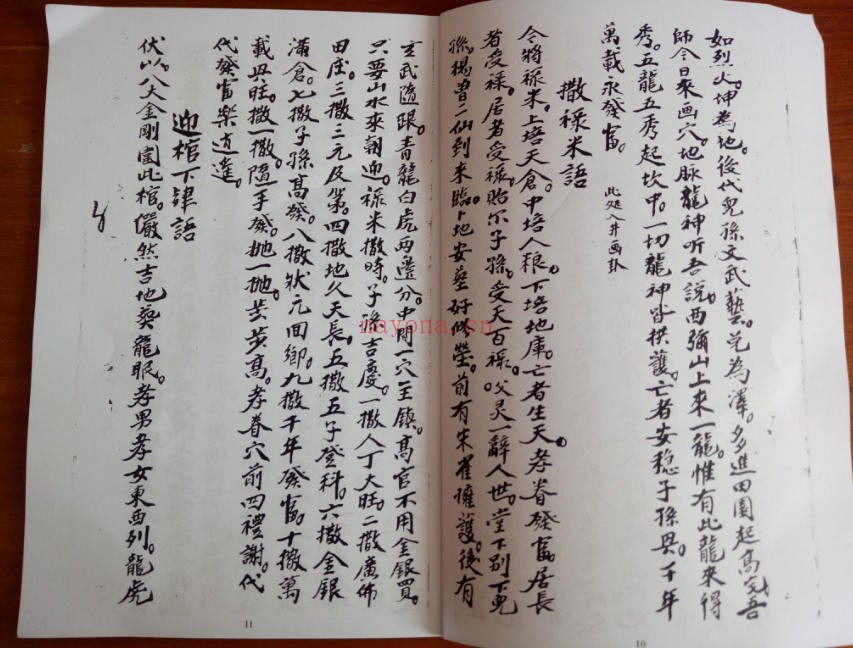 如烈火。坤為地。後代兒孫文武藝。兌為澤。多進田園起高宅。吾
師今日來画穴。地脉龍神听吾說。西弥山上來一龍。惟有此龍來得
秀。五龍五秀起坎中。一切龍神皆拱護。亡者安穏子孫興。千年
萬載永發富。 此処入井画卦
撒祿米語
今將祿米。上培天倉。中培人粮。下培地庫。亡者生天。孝眷發富。居長
者受祿。居者受祿。貽尔子孫。受天百祿。父灵一辭人世。堂下別下兒
孫。楊曽二仙到來臨。卜地安塟好修塋。前有朱雀擁護。後有
玄武隨跟。青龍白虎両邉分。中間一穴主鎮。高官不用金銀買。
只要山水來朝迎。祿米撒時。子孫吉慶。一撒人丁大旺。二撒廣佈
田庄。三撒三元及第。四撒地久天長。五撒五子登科。六撒金銀
滿倉。七撒子孫高發。八撒狀元回鄉。九撒千年發富。十撒萬
載興旺。撒一撒。隨手發。抛一抛。步步高。孝眷穴前四禮謝。代
代發富樂逍遙。
迎棺下肂語
伏以。八大金剛圍此棺。儼然吉地塟龍眠。孝男孝女東西列。龍虎
11
10
nayona.cn